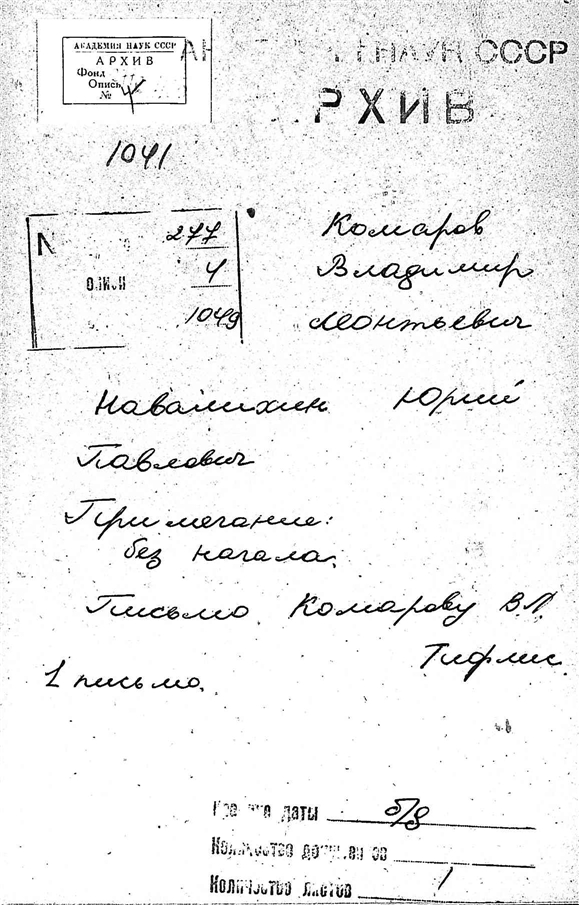 АКАДЕМИЯ НАУК СССР
АРХИВ
Фонд
Опись 4
№
НАУК СССР
АРХИВ
1041
277
4
1049
Комаров
Владимир
Леонтьевич
Навалихин Юрий
Павлович
Примечание:
без начала.
Письмо Комарову В.Л.
Тифлис.
1 письмо.
даты б/д
Количество
Количество листов 1